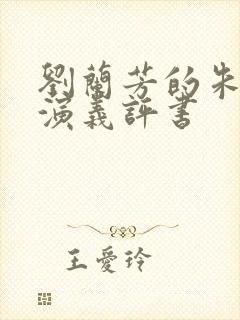 劉蘭芳的朱
演義評書
王愛玲